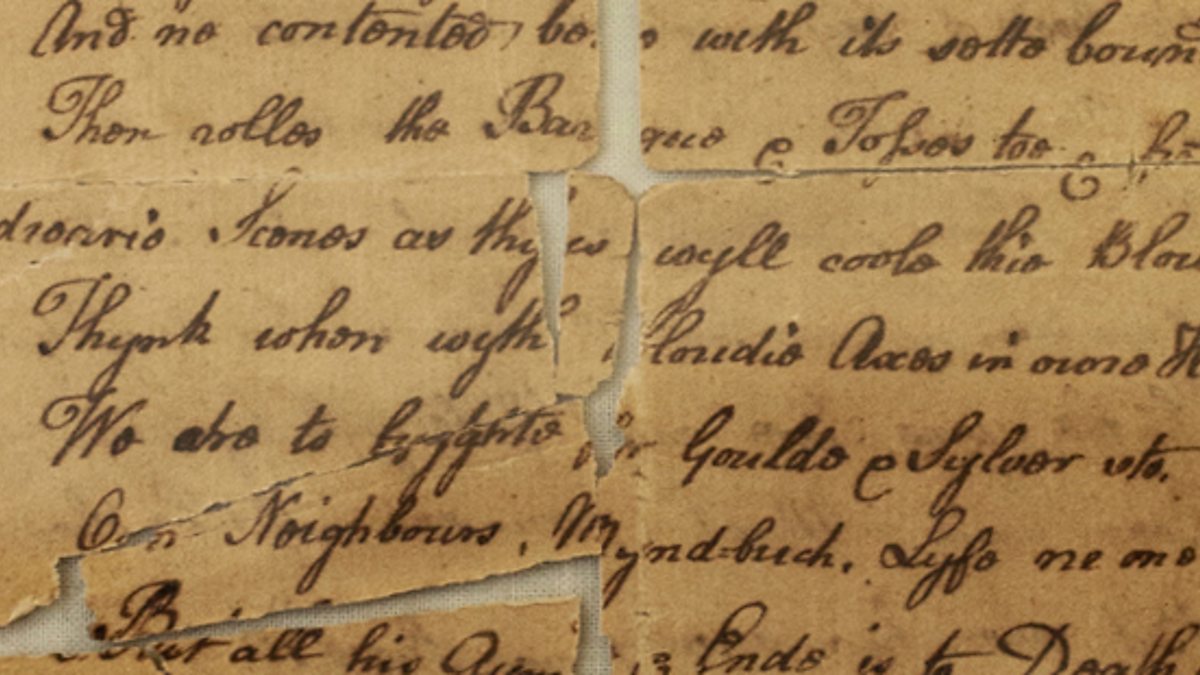 And no contented be with its sotte boun
Then rolles the Barque & Tosses toe & fr
drearie Scenes as thys wyll coole this Blou
Thynk when wyth bloudie Axes in oure H
We are to fygghte for Goulde & Sylver etc.
Our Neighbours, Mynd-such. Lyfe ne one
But all his Ende is to Death